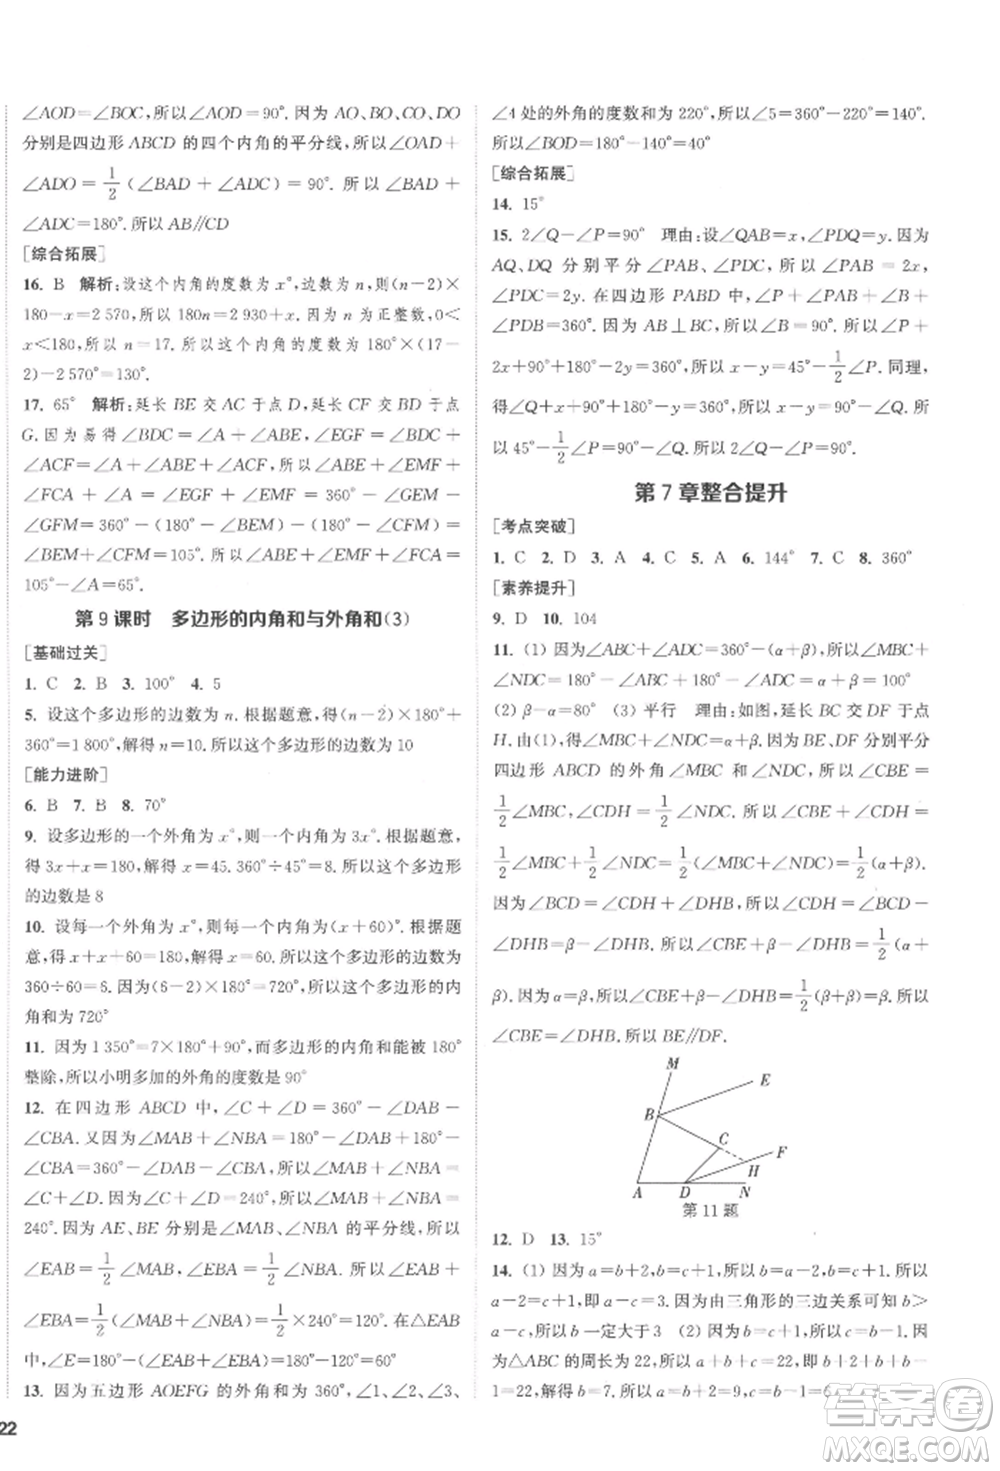 ∠AOD=∠BOC,所以∠AOD=90°. 因为 AO、BO、CO、DO
分别是四边形 ABCD 的四个内角的平分线,所以∠OAD+
∠ADO=1/2(∠BAD+∠ADC)=90°. 所以∠BAD+
∠ADC=180°. 所以 AB∥CD
[综合拓展]
16. B 解析:设这个内角的度数为 x°,边数为 n,则(n-2)×
180-x=2 570,所以 180n=2 930+x. 因为 n 为正整数,0<
x<180,所以 n=17. 所以这个内角的度数为 180°×(17-
2)-2 570°=130°.
17. 65° 解析:延长 BE 交 AC 于点 D,延长 CF 交 BD 于点
G. 因为易得∠BDC=∠A+∠ABE,∠EGF=∠BDC+
∠ACF=∠A+∠ABE+∠ACF,所以∠ABE+∠EMF+
∠FCA+∠A=∠EGF+∠EMF=360°-∠GEM-
∠GFM=360°-(180°-∠BEM)-(180°-∠CFM)=
∠BEM+∠CFM=105°. 所以∠ABE+∠EMF+∠FCA=
105°-∠A=65°.
第 9 课时 多边形的内角和与外角和(3)
[基础过关]
1. C 2. B 3. 100° 4. 5
5. 设这个多边形的边数为 n. 根据题意,得(n-2)×180°+
360°=1 800°,解得 n=10. 所以这个多边形的边数为 10
[能力进阶]
6. B 7. B 8. 70°
9. 设多边形的一个外角为 x°,则一个内角为 3x°. 根据题意,
得 3x+x=180,解得 x=45. 360°÷45°=8. 所以这个多边形
的边数是 8
10. 设每一个外角为 x°,则每一个内角为(x+60)°. 根据题
意,得 x+x+60=180,解得 x=60. 所以这个多边形的边数为
360÷60=6. (6-2)×180°=720°,所以这个多边形的内
角和为 720°
11. 因为 1 350°=7×180°+90°,而多边形的内角和能被 180°
整除,所以小明多加的外角的度数是 90°
12. 在四边形 ABCD 中,∠C+∠D=360°-∠DAB-
∠CBA. 又因为∠MAB+∠NBA=180°-∠DAB+180°-
∠CBA=360°-∠DAB-∠CBA,所以∠MAB+∠NBA=
∠C+∠D. 因为∠C+∠D=240°,所以∠MAB+∠NBA=
240°. 因为 AE、BE 分别是∠MAB、∠NBA 的平分线,所以
∠EAB=1/2∠MAB,∠EBA=1/2∠NBA. 所以∠EAB+
∠EBA=1/2(∠MAB+∠NBA)=1/2×240°=120°. 在△AEB
中,∠E=180°-(∠EAB+∠EBA)=180°-120°=60°
13. 因为五边形 AOEFG 的外角和为 360°,∠1、∠2、∠3、
22
∠4 处的外角的度数和为 220°,所以∠5=360°-220°=140°.
所以∠BOD=180°-140°=40°
[综合拓展]
14. 15°
15. 2∠Q-∠P=90° 理由:设∠QAB=x,∠PDQ=y. 因为
AQ、DQ 分别平分∠PAB、∠PDC,所以∠PAB=2x,
∠PDC=2y. 因为在四边形 PABD 中,∠P+∠PAB+∠B+
∠PDB=360°. 因为 AB⊥BC,所以∠B=90°. 所以∠P+
2x+90°+180°-2y=360°. 所以 x-y=45°-1/2∠P. 同理,
得∠Q+x+90°+180°-y=360°,所以 x-y=90°-∠Q. 所
以 45°-1/2∠P=90°-∠Q. 所以 2∠Q-∠P=90°
第 7 章整合提升
[考点突破]
1. C 2. D 3. A 4. A 5. A 6. 144° 7. C 8. 360°
[素养提升]
9. D 10. 104
11. (1) 因为∠ABC+∠ADC=360°-(α+β),所以∠MBC+
∠NDC=180°-∠ABC+180°-∠ADC=α+β=180°
(2) β-α=70° (3) 平行 理由:如图,延长 BC 交 DF 于点
H. 由(1),得∠MBC+∠NDC=α+β. 因为 BE、DF 分别平分
四边形 ABCD 的外角∠MBC 和∠NDC,所以∠CBE=
1/2∠MBC,∠CDH=1/2∠NDC. 所以∠CBE+∠CDH=
1/2∠MBC+1/2∠NDC=1/2(∠MBC+∠NDC)=1/2(α+β).
因为∠BCD=∠CDH+∠DHB,所以∠CDH=∠BCD-
∠DHB=β-∠DHB. 所以∠CBE+β-∠DHB=1/2(α+
β). 因为 α=β,所以∠CBE+β-∠DHB=1/2(β+β)=β. 所以
∠CBE=∠DHB. 所以 BE∥DF.
M
E
B
C
F
H
A
D
N
第 11 题
12. D 13. 15°
14. (1) 因为 a=b+2,b=c+1,所以 b+2=c+3=a. 所以
a-2=c+1,即 a-c=3. 因为由三角形的三边关系可知 b>
a-c,所以 b 一定大于 3 (2) 因为 b=c+1,所以 c=b-1. 因
为△ABC 的周长为 22,所以 a+b+c=22,即 b+2+b+b-
1=22,解得 b=7. 所以 a=b+2=9,c=b-1=6
答案圈
MXQE.COM